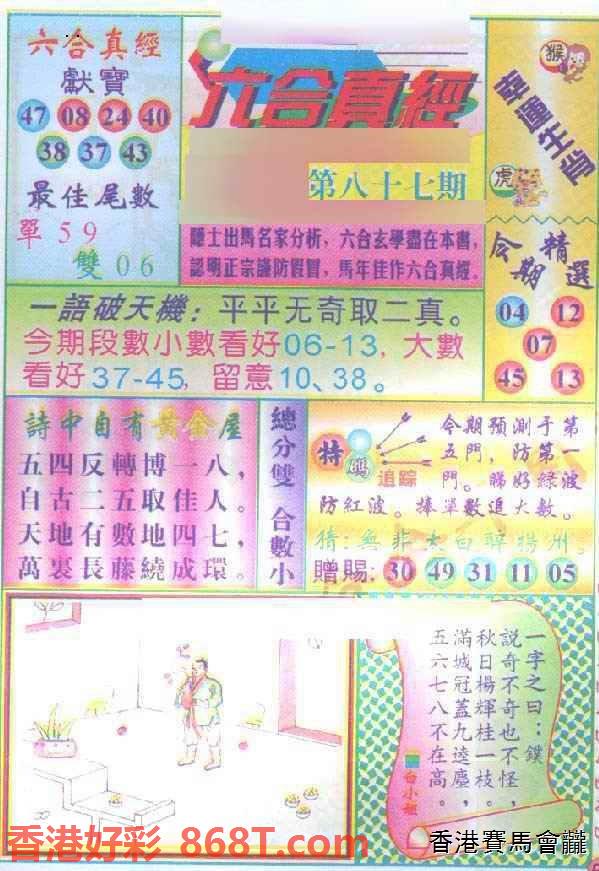 六合真經
獻寶
47 08 24 40
38 37 43
最佳尾數
單 59
雙 06
六合真經
第八十七期
隱士出馬名家分析，六合玄學盡在本書，
認明正宗謹防假冒，馬年佳作六合真經.
猴
幸運生肖
虎
今期精選
04 12
07
45 13
一語破天機：平平无奇取二真。
今期段數小數看好06-13，大數
看好37-45，留意10、38。
詩中自有黃金屋
五四反轉博一八，
自古二五取佳人。
天地有數地四七，
萬裏長藤繞成環。
總分雙 合數小
特碼
追踪
今期預測于第
五門，防第一
門。睇好綠波
防紅波。捧單數追大數。
猜：無非太白醉揚洲。
贈賜：30 49 31 11 05
一字之曰：鏷
說奇不奇也不怪，
秋日楊輝桂一枝。
滿城冠蓋九逵塵，
五六七八不在高。
白小姐
香港好彩 868T.com
香港賽馬會